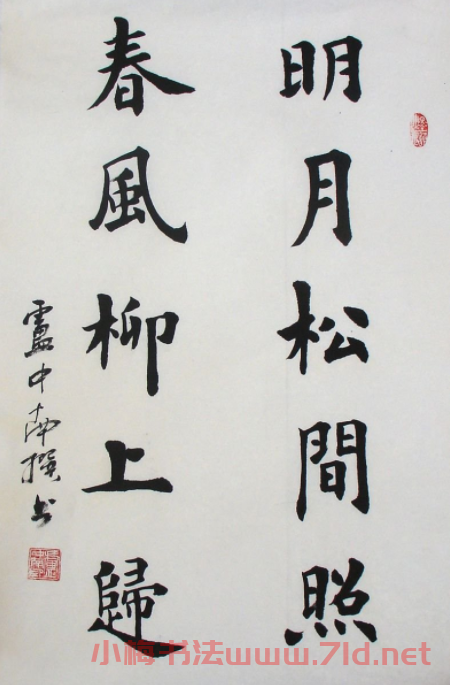 明月松間照
春風柳上歸
盧中南撰书
小梅书法www.7ld.net